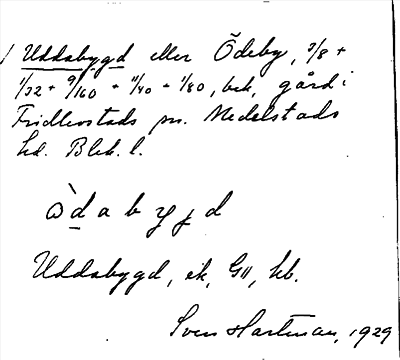 Uddabygd eller Ödeby, 3/8 +
1/32 + 9/160 + 11/40 + 1/80, bek, gård i
Fridlevstads sn. Medelstads
hd. Blek. l.
ὠdabyjd
Uddabygd, ek, GII, hb.
Sven Hartman, 1929